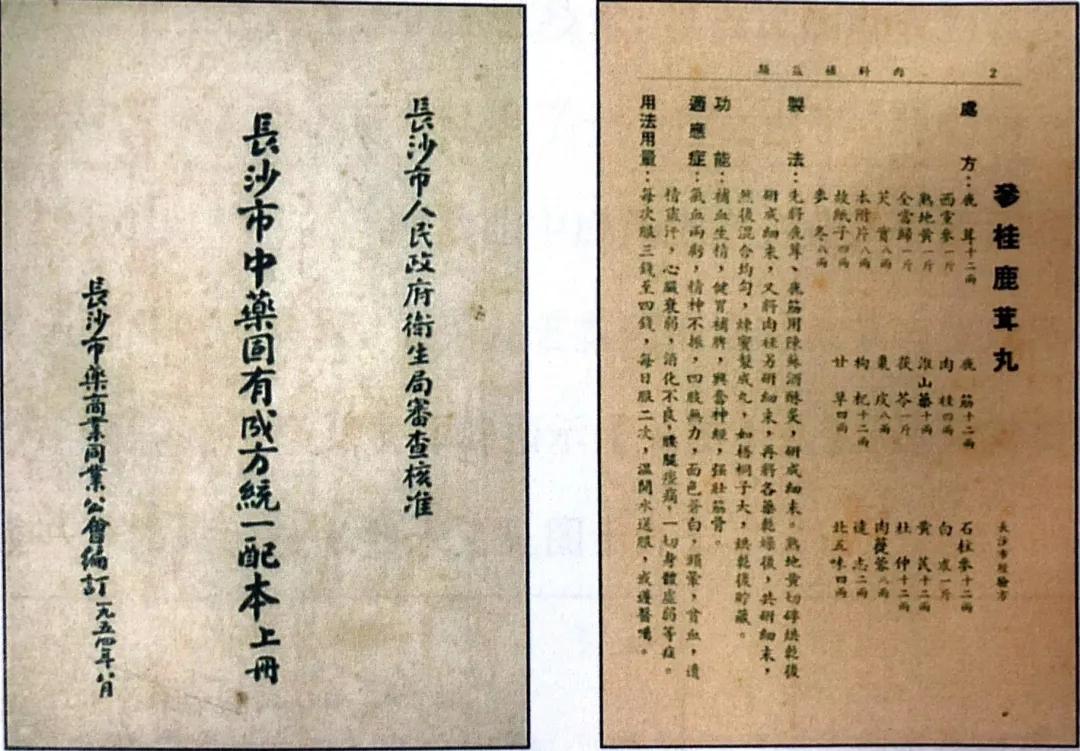 長沙市人民政府衛生局審查核准
長沙市中藥固有成方統一配本上冊
長沙市藥商業同業公會編訂 一九五四年八月
內科補益類 2
參桂鹿茸丸
長沙市經驗方
處方：鹿茸十二兩 鹿筋十二兩 石柱參十二兩
西党參一斤 肉桂四兩 白朮一斤
熟地黃一斤 淮山藥十兩 黃芪十二兩
全當歸一斤 茯苓一斤 杜仲十二兩
芡實八兩 棗皮八兩 肉蓯蓉八兩
本附片八兩 枸杞十二兩 遠志二兩
故紙子四兩 甘草四兩 北五味四兩
麥冬八兩
製法：先將鹿茸、鹿筋用陳蘇酒酥炙，研成細末。熟地黃切碎烘乾後
研成細末，又將肉桂另研細末，再將各藥乾燥後，共研細末，
然後混合均勻，煉蜜製成丸，如梧桐子大，烘乾後貯藏。
功能：補血生精，健胃補脾，興奮神經，强壯筋骨。
適應症：氣血兩虧，精神不振，四肢無力，面色蒼白，頭暈，貧血，遺
精盜汗，心臟衰弱，消化不良，腰腿痠痛，一切身體虛弱等症。
用法用量：每次服三錢至四錢，每日服二次，溫開水送服，或遵醫囑。